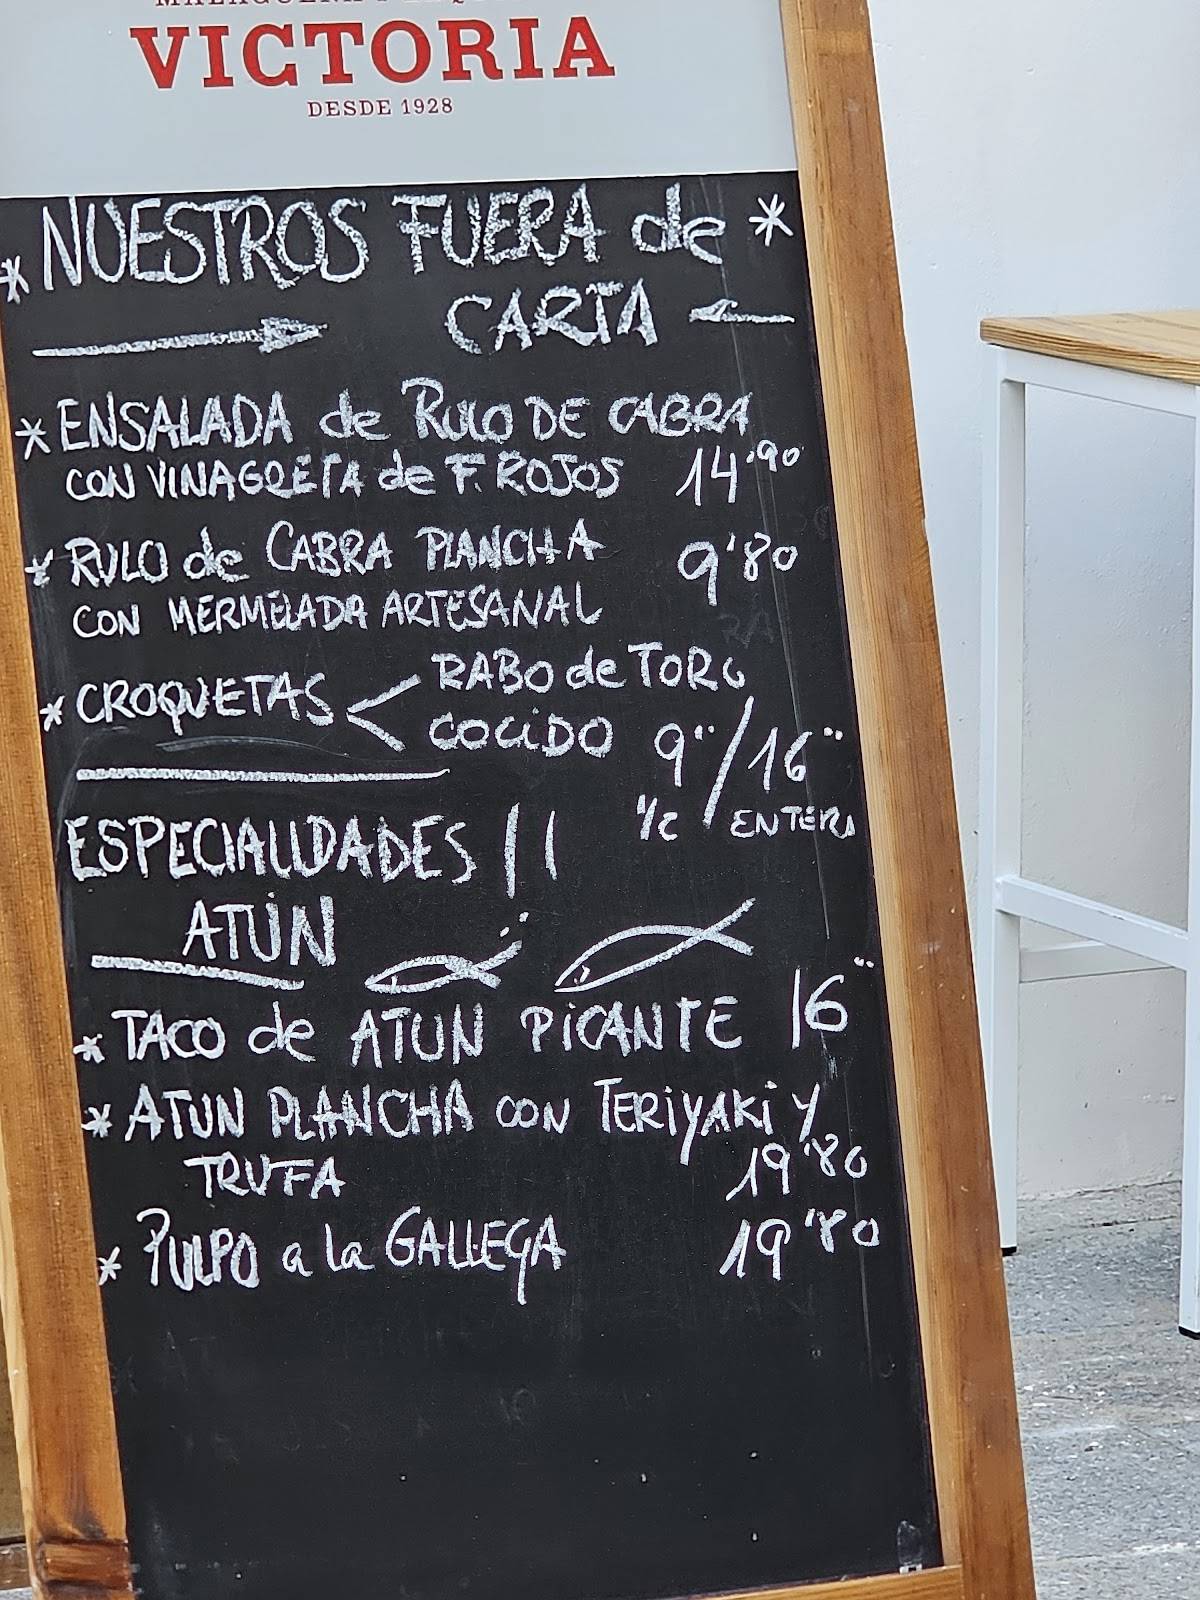 VICTORIA
DESDE 1928
* NUESTROS FUERA de *
CARTA
* ENSALADA de RULO DE CABRA
CON VINAGRETA de F. ROJOS 14'90
* RULO de CABRA PLANCHA 9'80
CON MERMELADA ARTESANAL
* CROQUETAS < RABO de TORO
COCIDO 9"/16"
1/2 ENTERA
ESPECIALIDADES
ATÚN
* TACO de ATUN PICANTE 16"
* ATUN PLANCHA CON TERIYAKI Y
TRUFA 19'80
* PULPO a la GALLEGA 19'80